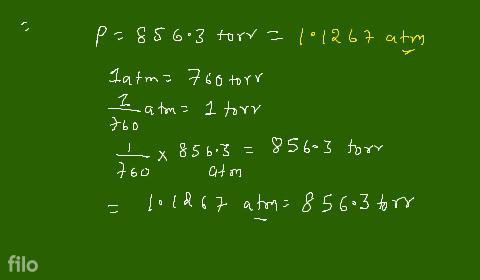 =
P = 856.3 torr = 1.1267 atm
1atm = 760 torr
1/760 atm = 1 torr
1/760 × 856.3 atm = 856.3 torr
= 1.1267 atm = 856.3 torr
filo